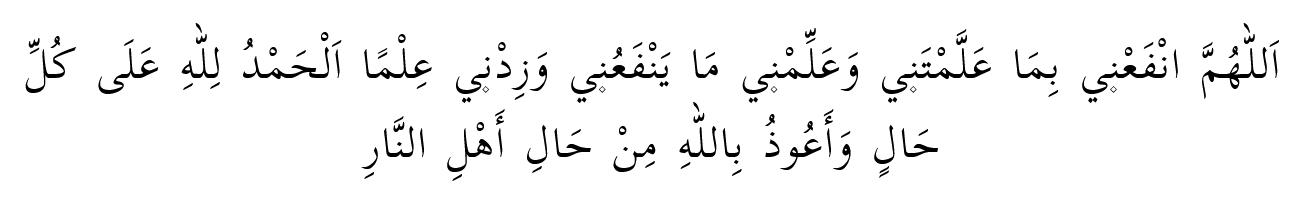 اَللّٰهُمَّ انْفَعْنِي بِمَا عَلَّمْتَنِي وَعَلِّمْنِي مَا يَنْفَعُنِي وَزِدْنِي عِلْمًا اَلْحَمْدُ لِلّٰهِ عَلَى كُلِّ
حَالٍ وَأَعُوذُ بِاللّٰهِ مِنْ حَالِ أَهْلِ النَّارِ